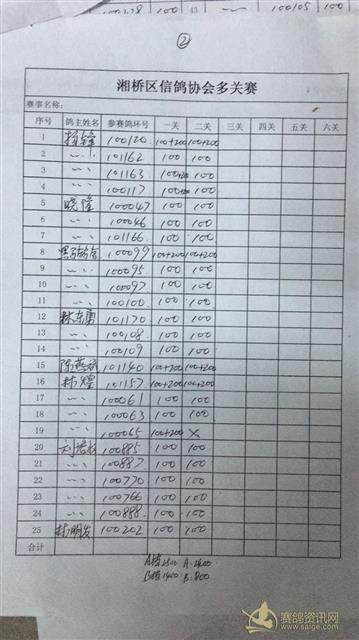 100105
②
湘桥区信鸽协会多关赛
赛事名称:
序号 鸽主姓名 参赛鸽环号 一关 二关 三关 四关 五关 六关
1 100120 100+200 100+200
2 101162 100 100
3 101163 100
4 100117 100
5 晓隆 100047 100 100
6 100046 100 100
7 101166 100 100
8 100099 100+200 100+200
9 100095 100 100
10 100097 100 100
11 100100 100 100
12 林东勇 101170 100 100
13 100108 100 100
14 100109 100 100
15 陈燕斌 101140 100+200 100+200
16 林煌 101157 100+200 100+200
17 100061 100 100
18 100063 100 100
19 100065 100+200 ×
20 100885 100 100
21 100887 100 100
22 100770 100 100
23 100766 100 100
24 100888 100 100
25 林明发 100202 100 100
合计
赛鸽资讯网
www.saige.com